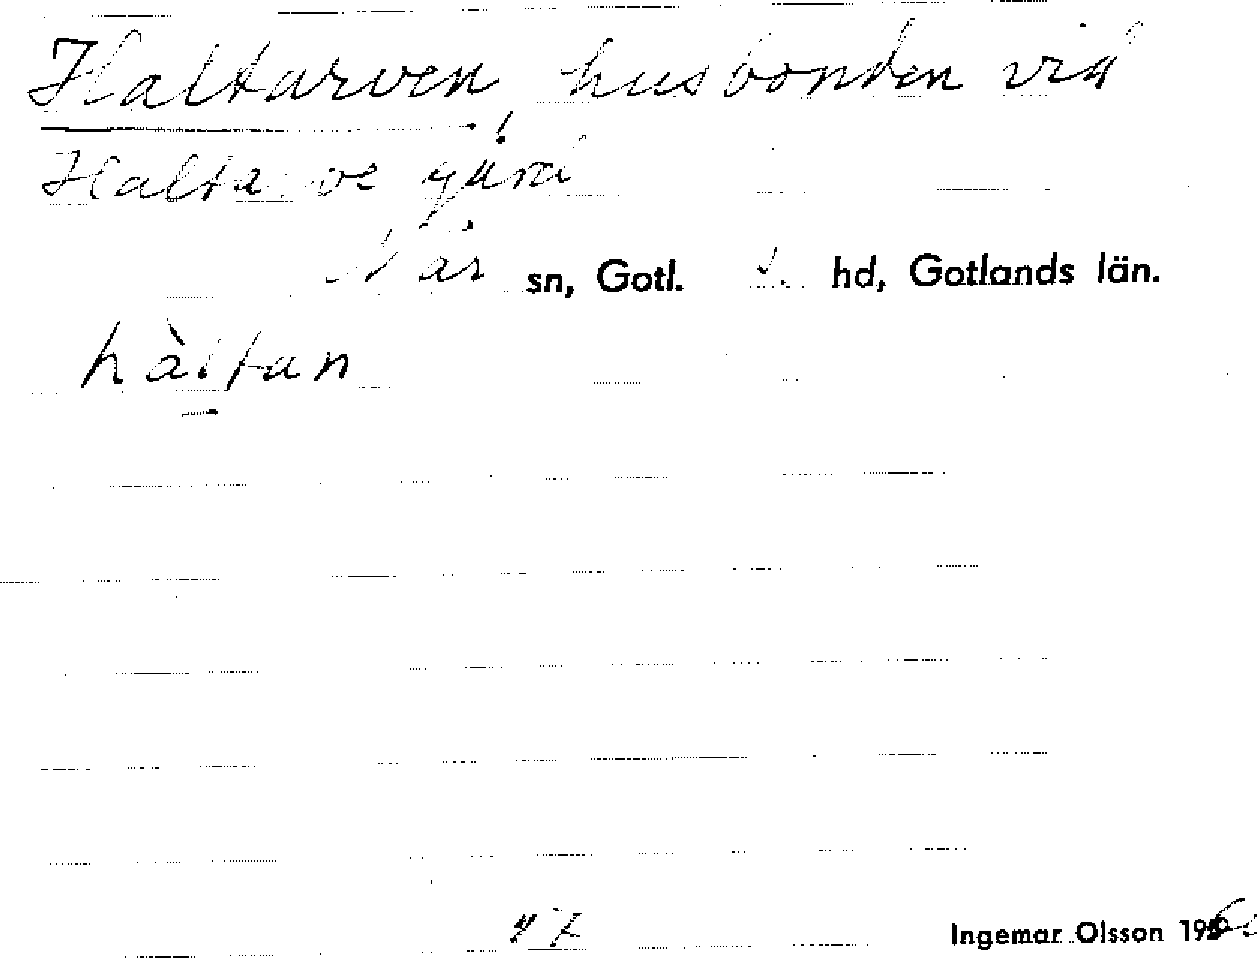 Haltarven, husbonden vid
Haltarve gård
När sn, Gotl. S. hd, Gotlands län.
hàltan
27 Ingemar Olsson 1960